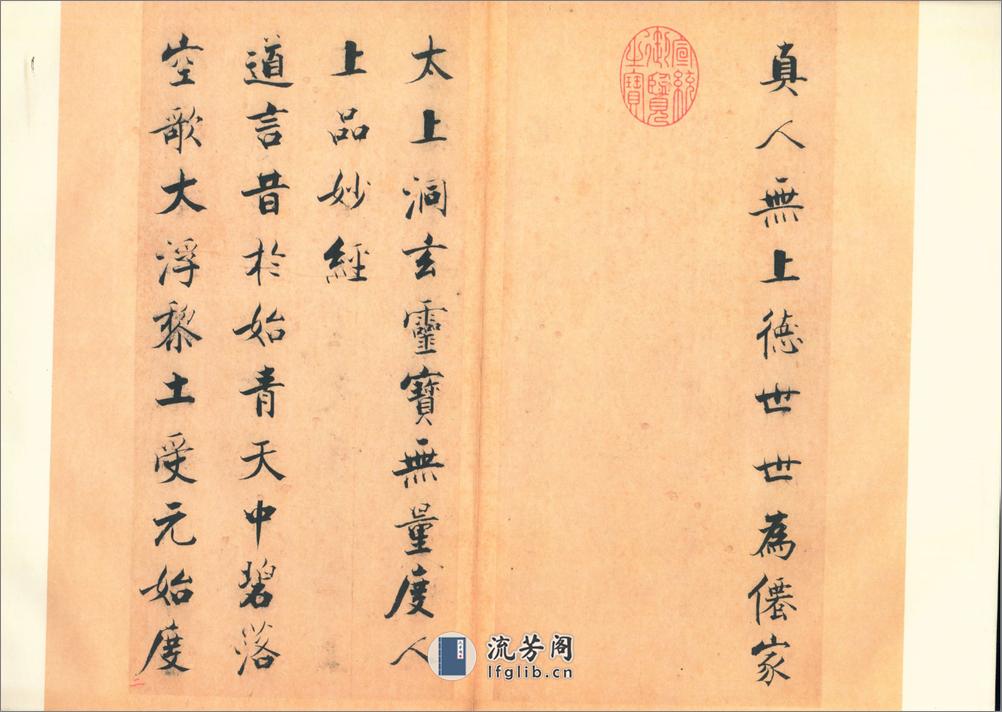 真人無上德世世為僊家
宣統
御覽
之寶
太上洞玄靈寶無量度人
上品妙經
道言昔於始青天中碧落
空歌大浮黎土受元始度
二
流芳阁
lfglib.cn